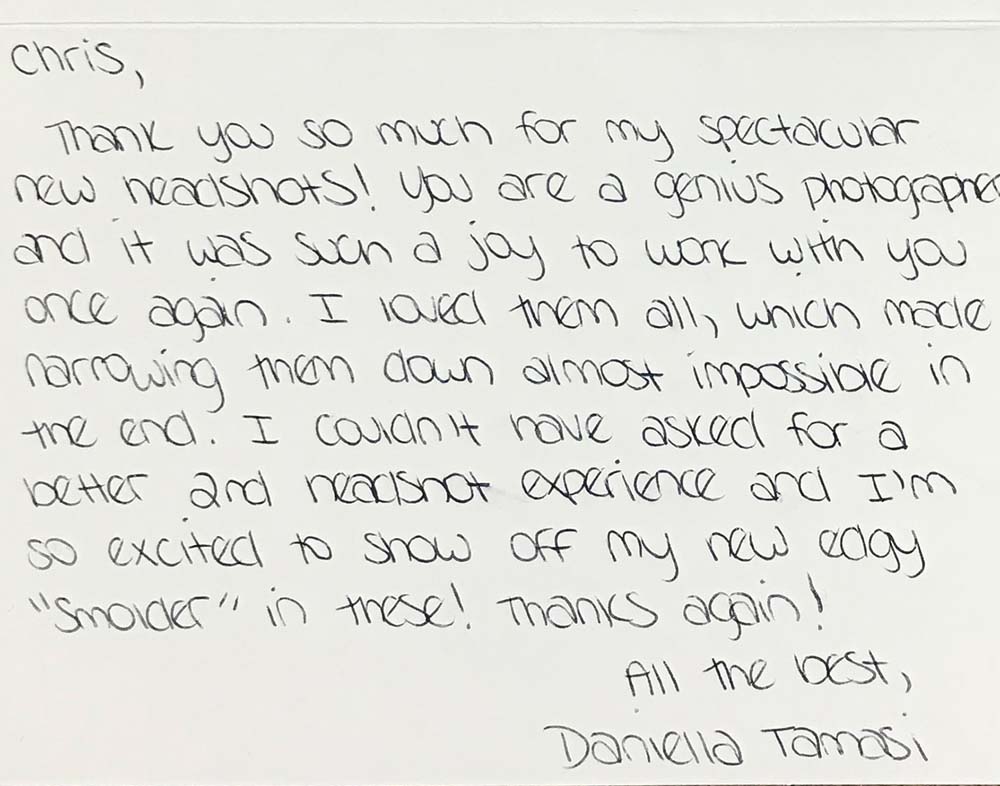 Chris,
Thank you so much for my spectacular
new headshots! You are a genius photographer
and it was such a joy to work with you
once again. I loved them all, which made
narrowing them down almost impossible in
the end. I couldn't have asked for a
better 2nd headshot experience and I'm
so excited to show off my new edgy
"smolder" in these! Thanks again!
All the best,
Daniella Tamasi